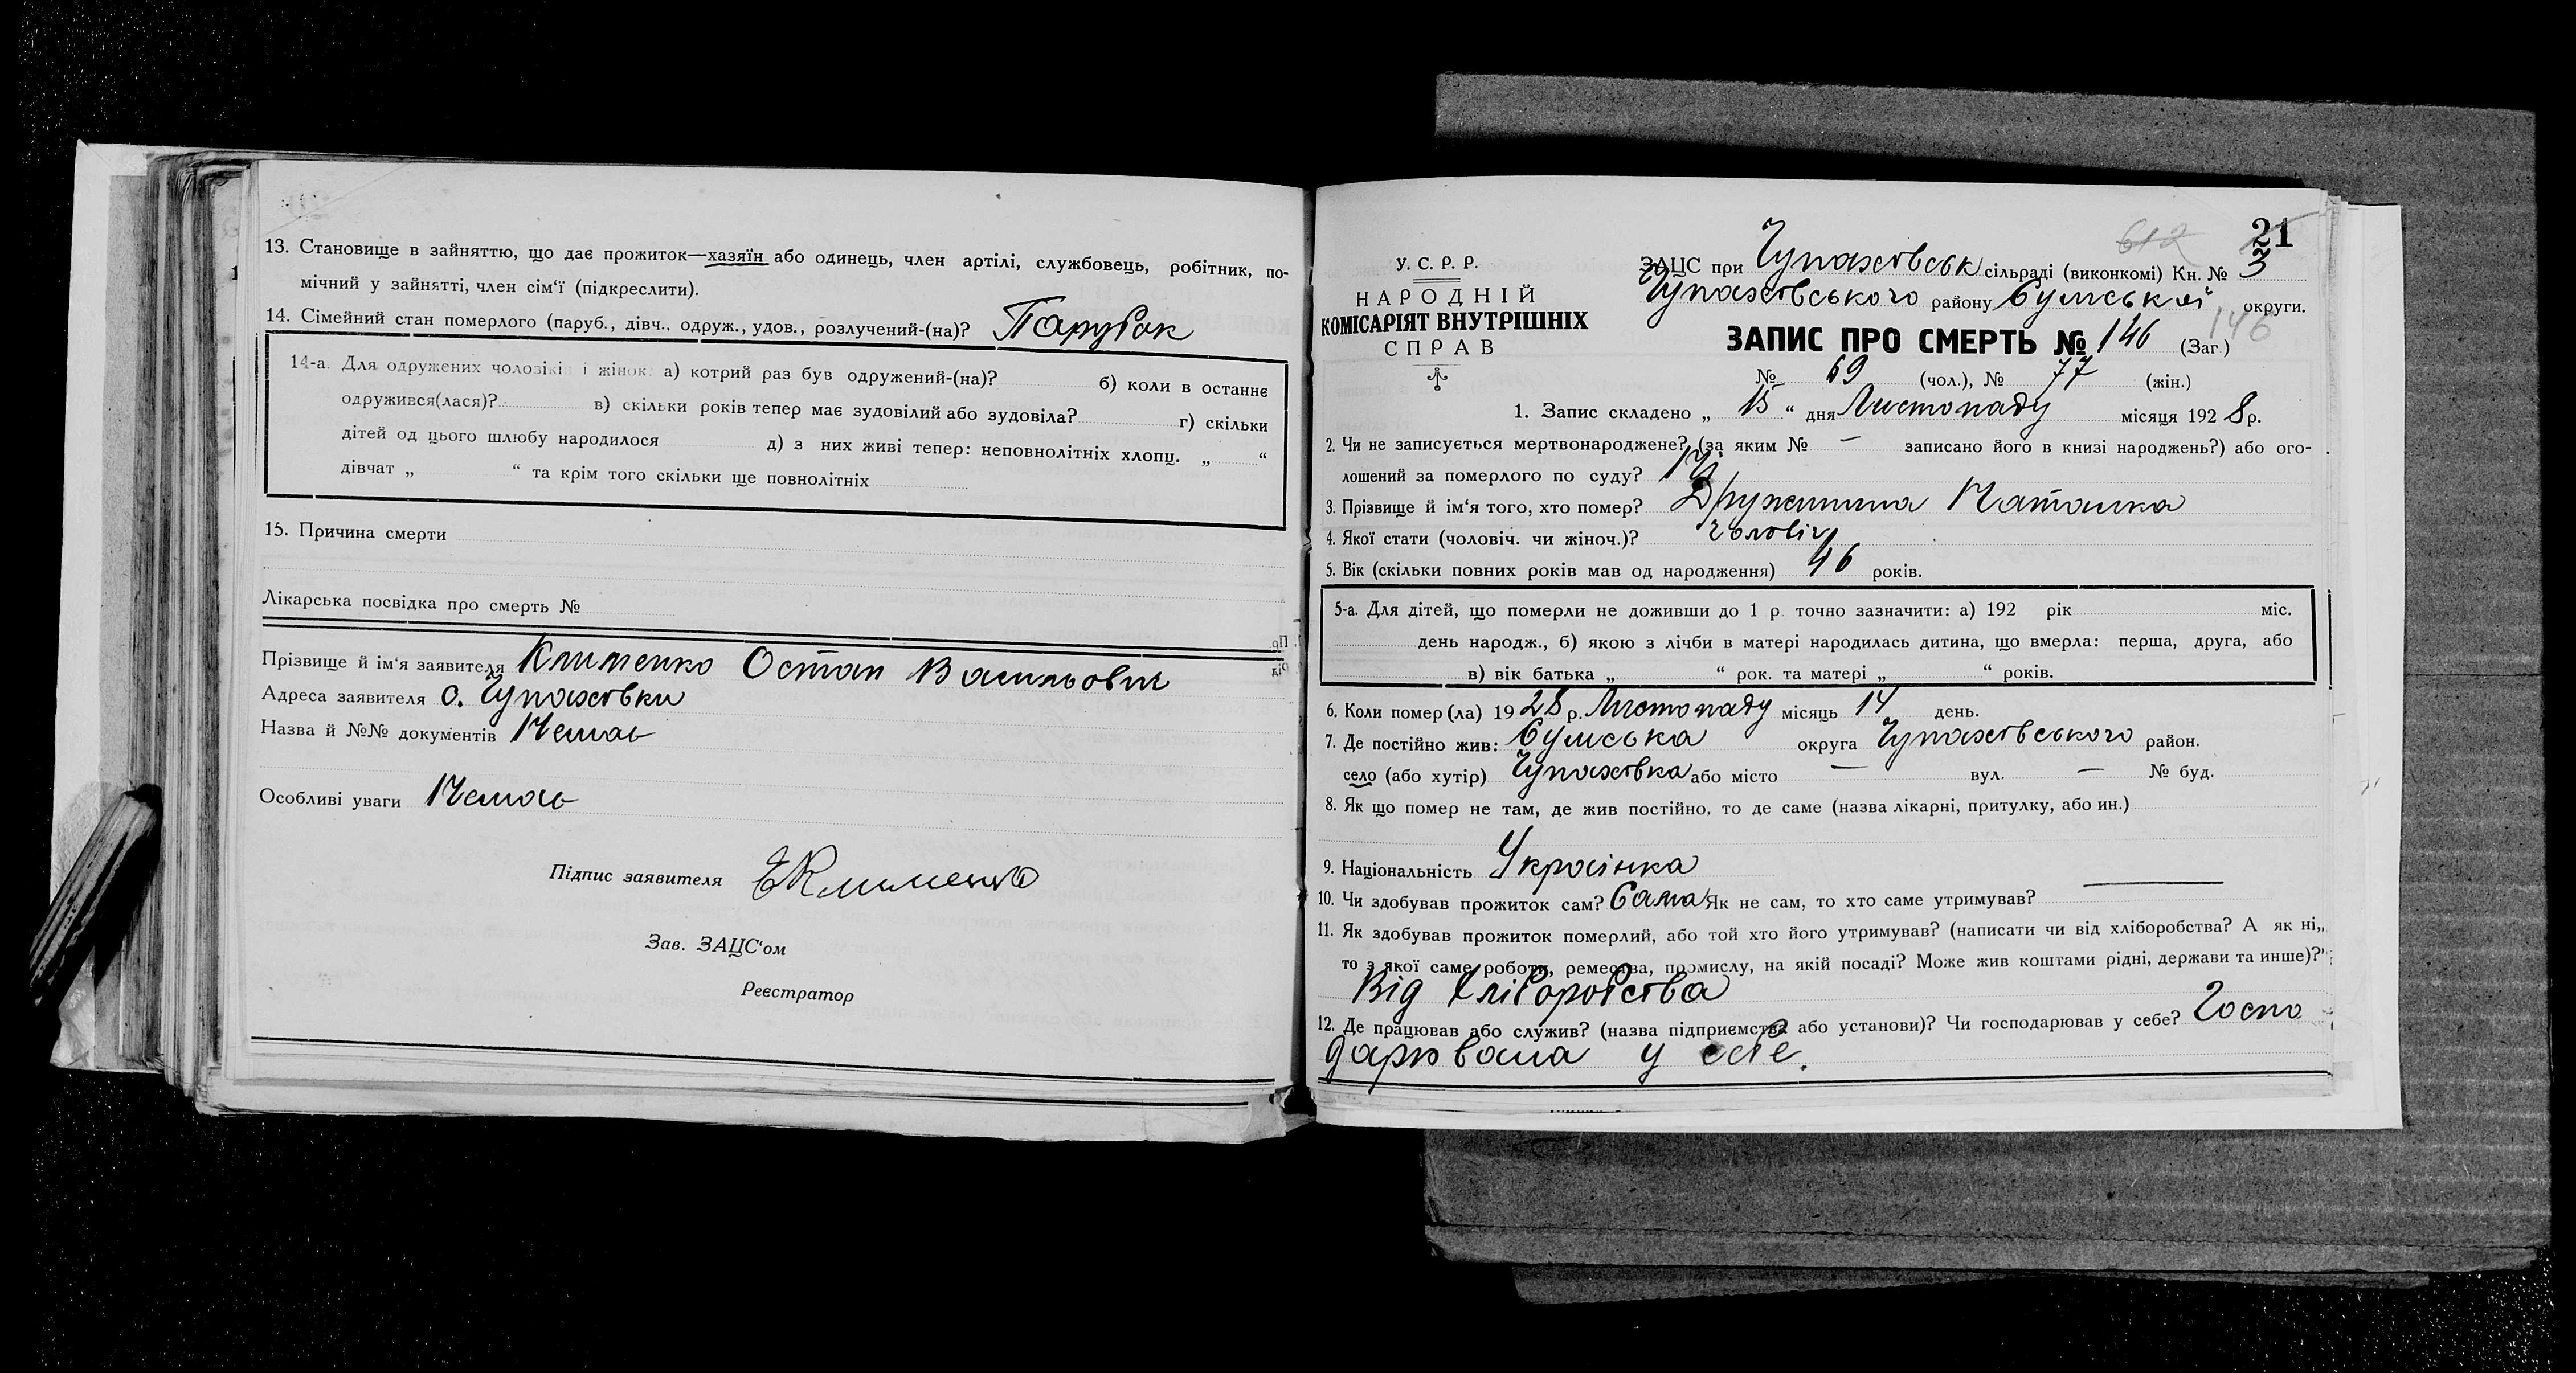 13. Становище в зайняттю, що дає прожиток—хазяїн або одинець, член артілі, службовець, робітник, по-
мічний у зайнятті, член сім‘ї (підкреслити).
14. Сімейний стан померлого (паруб., дівч., одруж., удов., розлучений-(на)? Парубок
14-а. Для одружених чоловіків і жінок: а) котрий раз був одружений-(на)? б) коли в останнє
одружився(лася)? в) скільки років тепер має зудовілий або зудовіла? г) скільки
дітей од цього шлюбу народилося д) з них живі тепер: неповнолітніх хлопц. „ “
дівчат „ “ та крім того скільки ще повнолітніх
15. Причина смерти
Лікарська посвідка про смерть №
Прізвище й ім‘я заявителя Клименко Остап Васильович
Адреса заявителя с. Чупахівки
Назва й №№ документів Немає
Особливі уваги Немає
Підпис заявителя ЕКлименко
Зав. ЗАЦС‘ом
Реєстратор
612 21
У. С. Р. Р.
НАРОДНІЙ
КОМІСАРІЯТ ВНУТРІШНІХ
СПРАВ
ЗАЦС при Чупахівськ сільраді (виконкомі) Кн. № 3
Чупахівського району Сумської округи.
146
ЗАПИС ПРО СМЕРТЬ № 146 (Заг.)
№ 69 (чол.), № 77 (жін.)
1. Запис складено „ 15 “ дня Листопаду місяця 192 8 р.
2. Чи не записується мертвонароджене? (за яким № — записано його в книзі народжень?) або ого-
лошений за померлого по суду? Ні
3. Прізвище й ім‘я того, хто помер? Дружинина Наталка
4. Якої стати (чоловіч. чи жіноч.)? Чоловіч
5. Вік (скільки повних років мав од народження) 46 років.
5-а. Для дітей, що померли не доживши до 1 р. точно зазначити: а) 192 рік міс.
день народж., б) якою з лічби в матері народилась дитина, що вмерла: перша, друга, або
в) вік батька „ “ рок. та матері „ “ років.
6. Коли помер(ла) 19 28 р. Листопаду місяць 14 день.
7. Де постійно жив: Сумська округа Чупахівського район.
село (або хутір) Чупахівка або місто — вул. — № буд.
8. Як що помер не там, де жив постійно, то де саме (назва лікарні, притулку, або ин.)
9. Національність Українка
10. Чи здобував прожиток сам? Сама Як не сам, то хто саме утримував? —
11. Як здобував прожиток померлий, або той хто його утримував? (написати чи від хліборобства? А як ні„
то з якої саме роботи, ремества, промислу, на якій посаді? Може жив коштами рідні, держави та инше)?"
Від Хліборобства
12. Де працював або служив? (назва підприємства або установи)? Чи господарював у себе? Госпо
дарювала у себе.